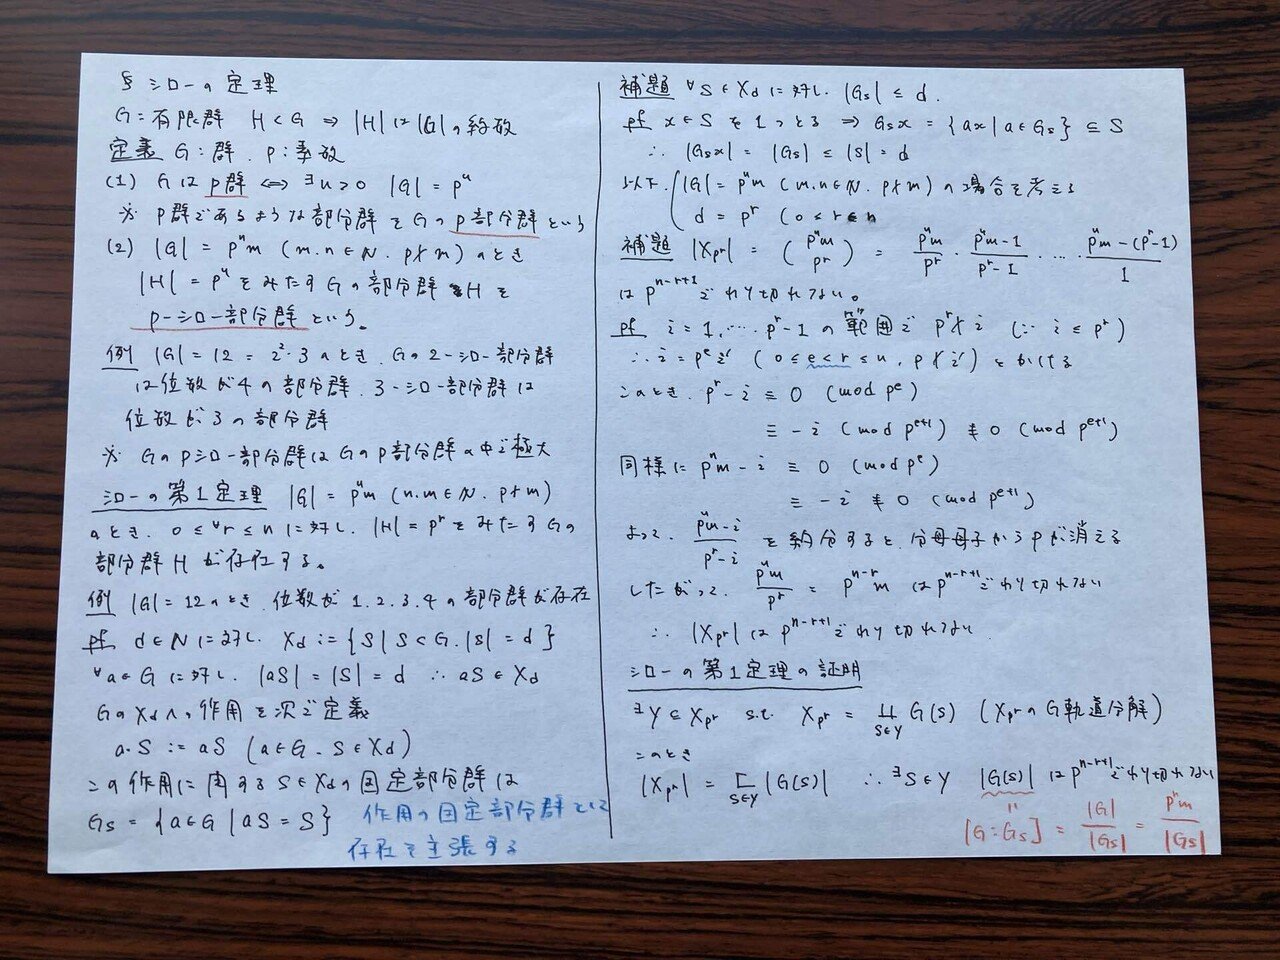 § シローの定理
G:有限群 H<G ⇒ |H|は|G|の約数
定義 G:群. P:素数
(1) Gはp群 ⇔ ∃n>0 |G|=pⁿ
※ p群であるような部分群をGのp部分群という
(2) |G|=pⁿm (m.n∈N. p∤m)のとき
|H|=pⁿをみたすGの部分群Hを
p-シロー部分群という。
例 |G|=12=2²·3のとき. Gの2-シロー部分群
は位数が4の部分群. 3-シロー部分群は
位数が3の部分群
※ Gのpシロー部分群はGのp部分群の中で極大
シローの第1定理 |G|=pⁿm (n.m∈N. p∤m)
のとき. 0≤∀r≤nに対し. |H|=pʳをみたすGの
部分群Hが存在する。
例 |G|=12のとき.位数が1.2.3.4の部分群が存在
pf d∈Nに対し. Xd:={S|S⊂G.|S|=d}
∀a∈Gに対し. |aS|=|S|=d ∴ aS∈Xd
GのXdへの作用を次で定義
a·S := aS (a∈G. S∈Xd)
この作用に関するS∈Xdの固定部分群は
Gs={a∈G|aS=S} 作用の固定部分群として
存在を主張する
補題 ∀S∈Xdに対し. |Gs|≤d.
pf x∈Sを1つとる ⇒ Gsx={ax|a∈Gs}⊆S
∴ |Gsx|=|Gs|≤|S|=d
以下. |G|=pⁿm (m.n∈N. p∤m)の場合を考える
d=pʳ (0<r≤n
補題 |Xpʳ| = (pⁿm pʳ) = pⁿm/pʳ · pⁿm-1/pʳ-1 · … · pⁿm-(pʳ-1)/1
はpⁿ⁻ʳ⁺¹でわり切れない。
pf i=1,…,pʳ-1の範囲で pʳ∤i (∵ i≤pʳ)
∴ i=pᵉi' (0≤e<r≤n, p∤i')とかける
このとき. pʳ-i ≡ 0 (mod pᵉ)
≡ -i (mod pᵉ⁺¹) ≢ 0 (mod pᵉ⁺¹)
同様に pⁿm-i ≡ 0 (mod pᵉ)
≡ -i ≢ 0 (mod pᵉ⁺¹)
よって. pⁿm-i/pʳ-i を約分すると.分母母子からpが消える
したがって. pⁿm/pʳ = pⁿ⁻ʳm はpⁿ⁻ʳ⁺¹でわり切れない
∴ |Xpʳ|はpⁿ⁻ʳ⁺¹でわり切れない.
シローの第1定理の証明
∃Y⊆Xpʳ s.t. Xpʳ = ∐ S∈Y G(s) (XpʳのG軌道分解)
このとき
|Xpʳ| = Σ S∈Y |G(s)| ∴ ∃S∈Y |G(s)|はpⁿ⁻ʳ⁺¹でわり切れない
=
[G:Gs] = |G|/|Gs| = pⁿm/|Gs|